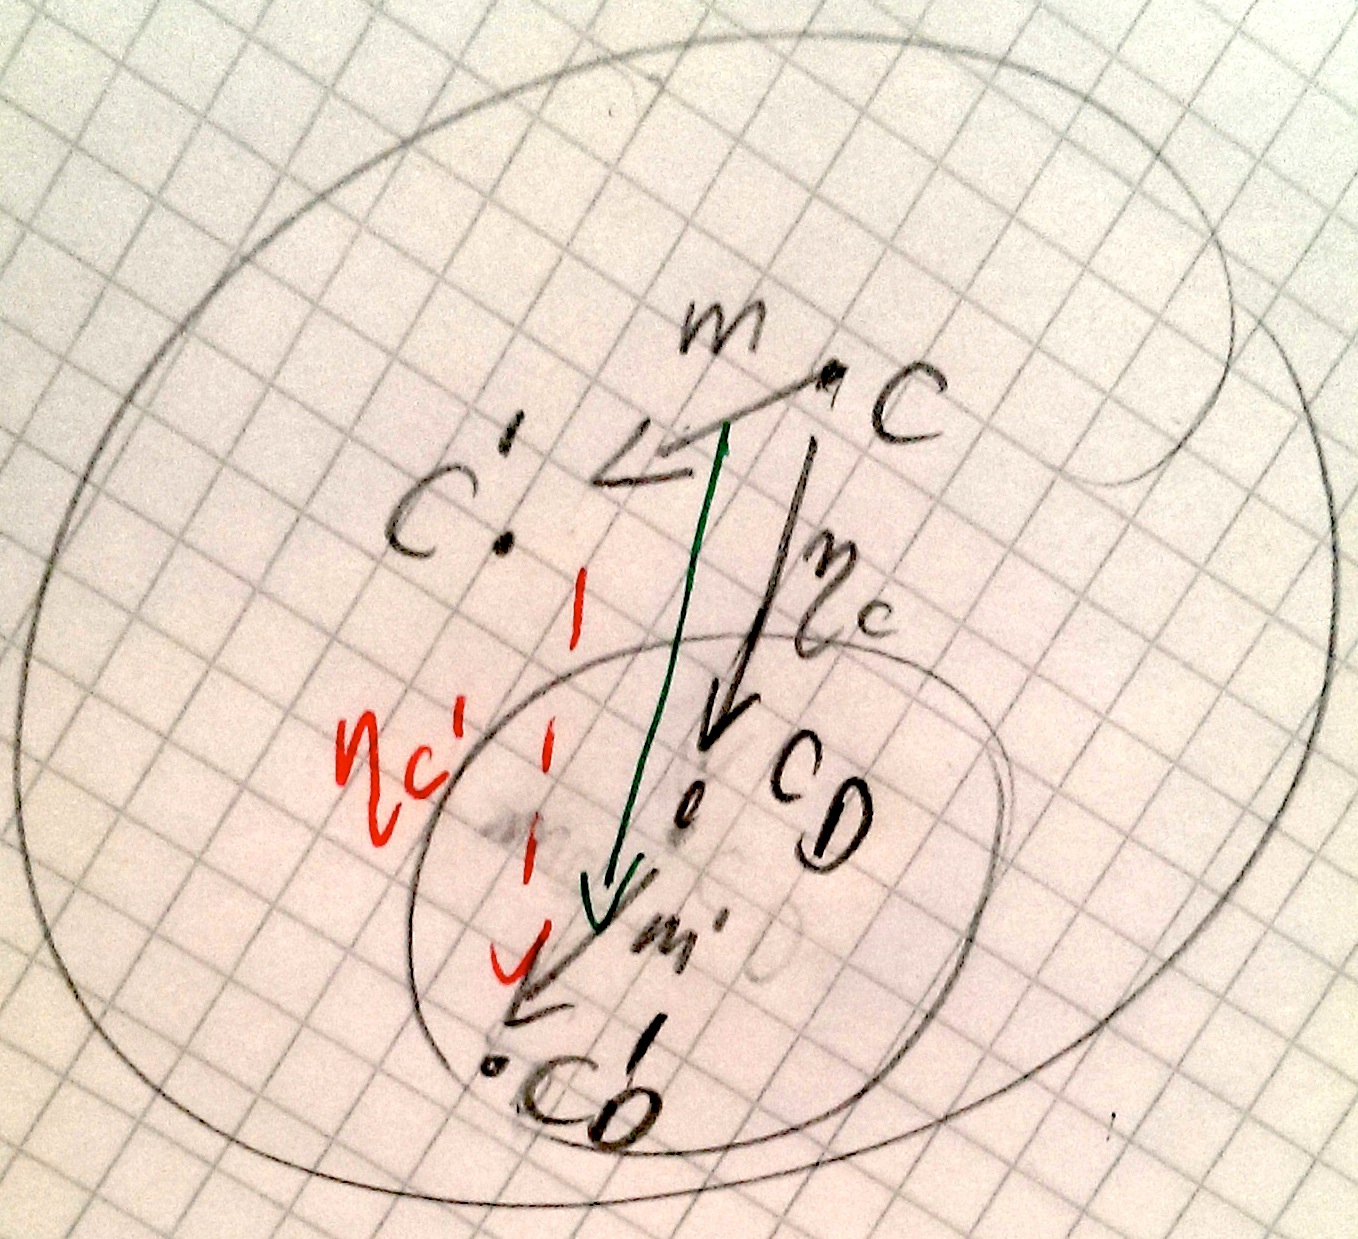 m
C
C'
ηc
ηc'
CD
m'
C'D